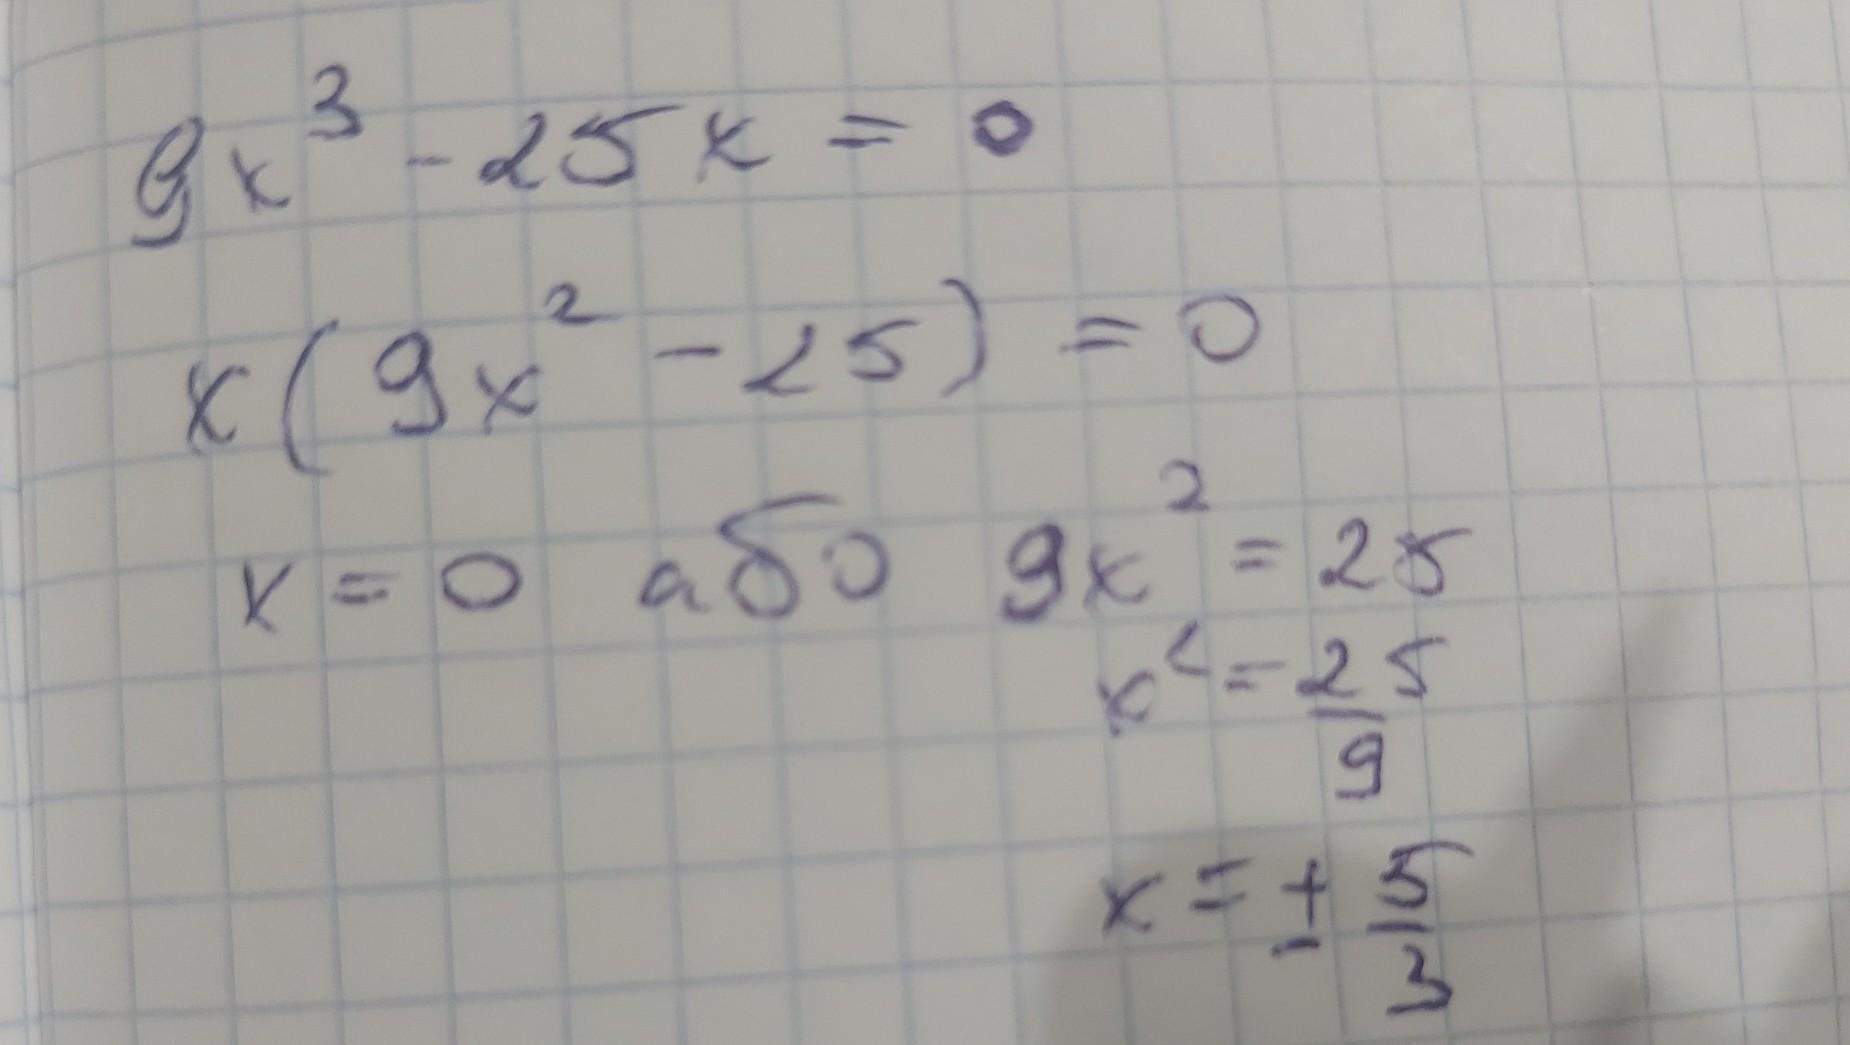 9x³ - 25x = 0
x(9x² - 25) = 0
x = 0 або 9x² = 25
x² = 25/9
x = ± 5/3